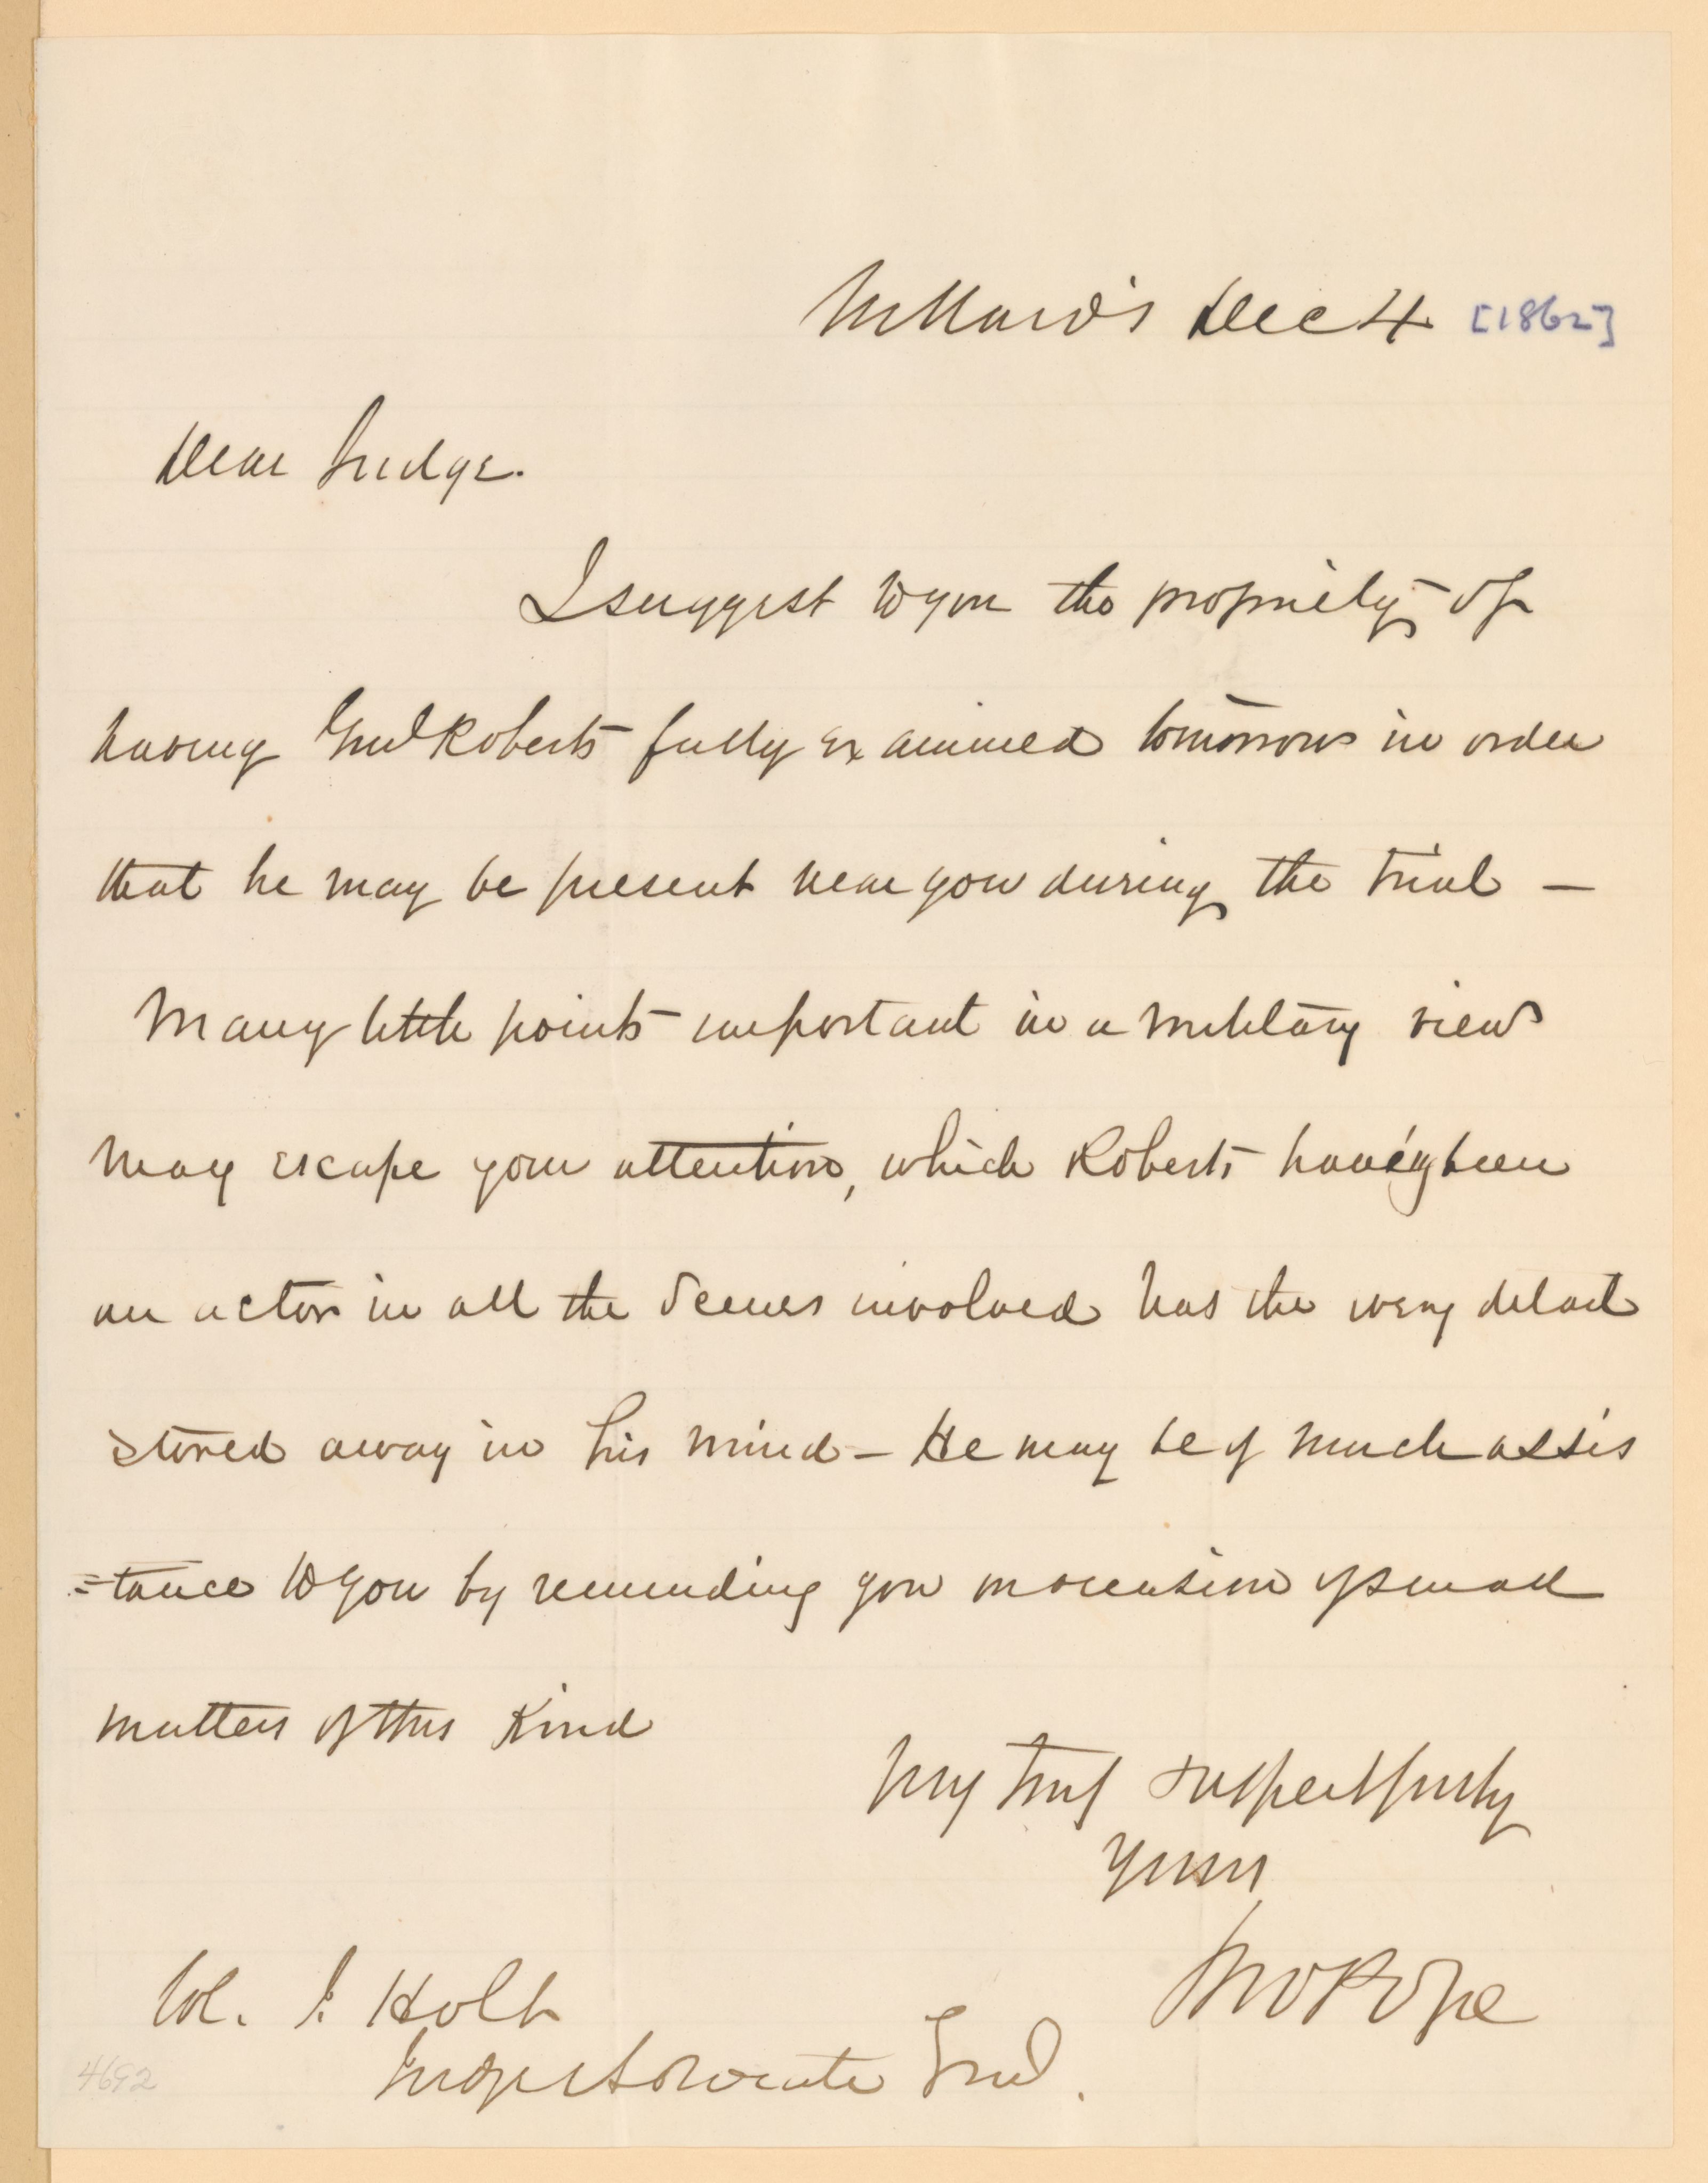 Willard's Dec 4 [1862]
Dear Judge.
I suggest to you the propriety of
having Genl Roberts fully examined tomorrow in order
that he may be present near you during the trial —
Many little points important in a military view
may escape your attention, which Roberts having been
an actor in all the scenes involved has the very detail
stored away in his mind — He may be of much assis
=tance to you by reminding you on occasion of small
matters of this kind
Very truly & respectfully
Yours
Jno Pope
Col. J. Holt
Judge Advocate Genl.
4692